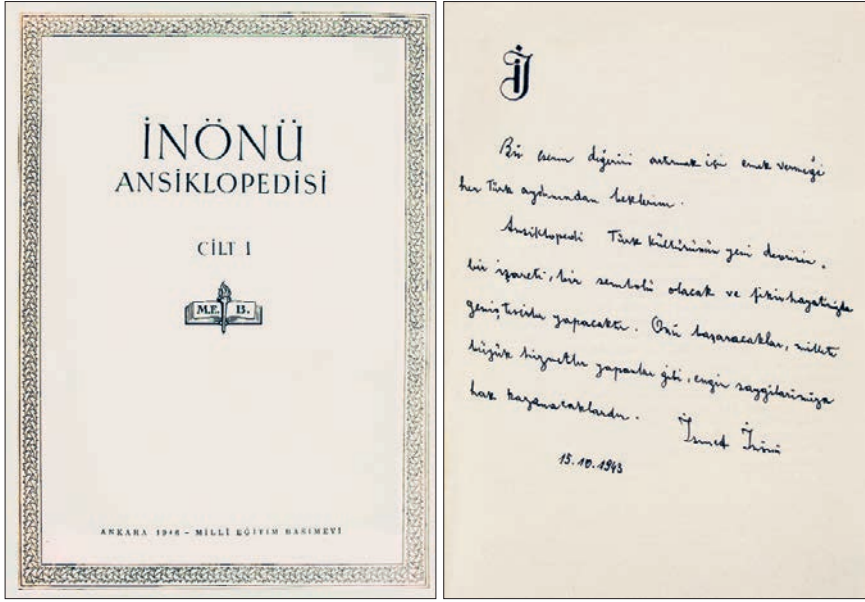 İNÖNÜ
ANSİKLOPEDİSİ
CİLT I
M.E. B.
ANKARA 1946 – MİLLÎ EĞİTİM BASIMEVİ
İ
Bu eserin değerini artırmak için emek vermeği
her Türk aydınından beklerim.
Ansiklopedi Türk kültürünün yeni devrinin
bir işareti, bir sembolü olacak ve fikir hayatımızda
geniş tesirler yapacaktır. Onu başaracaklar, millete
büyük hizmetler yapanlar gibi, engin saygılarımıza
hak kazanacaklardır. İsmet İnönü
15.10.1943